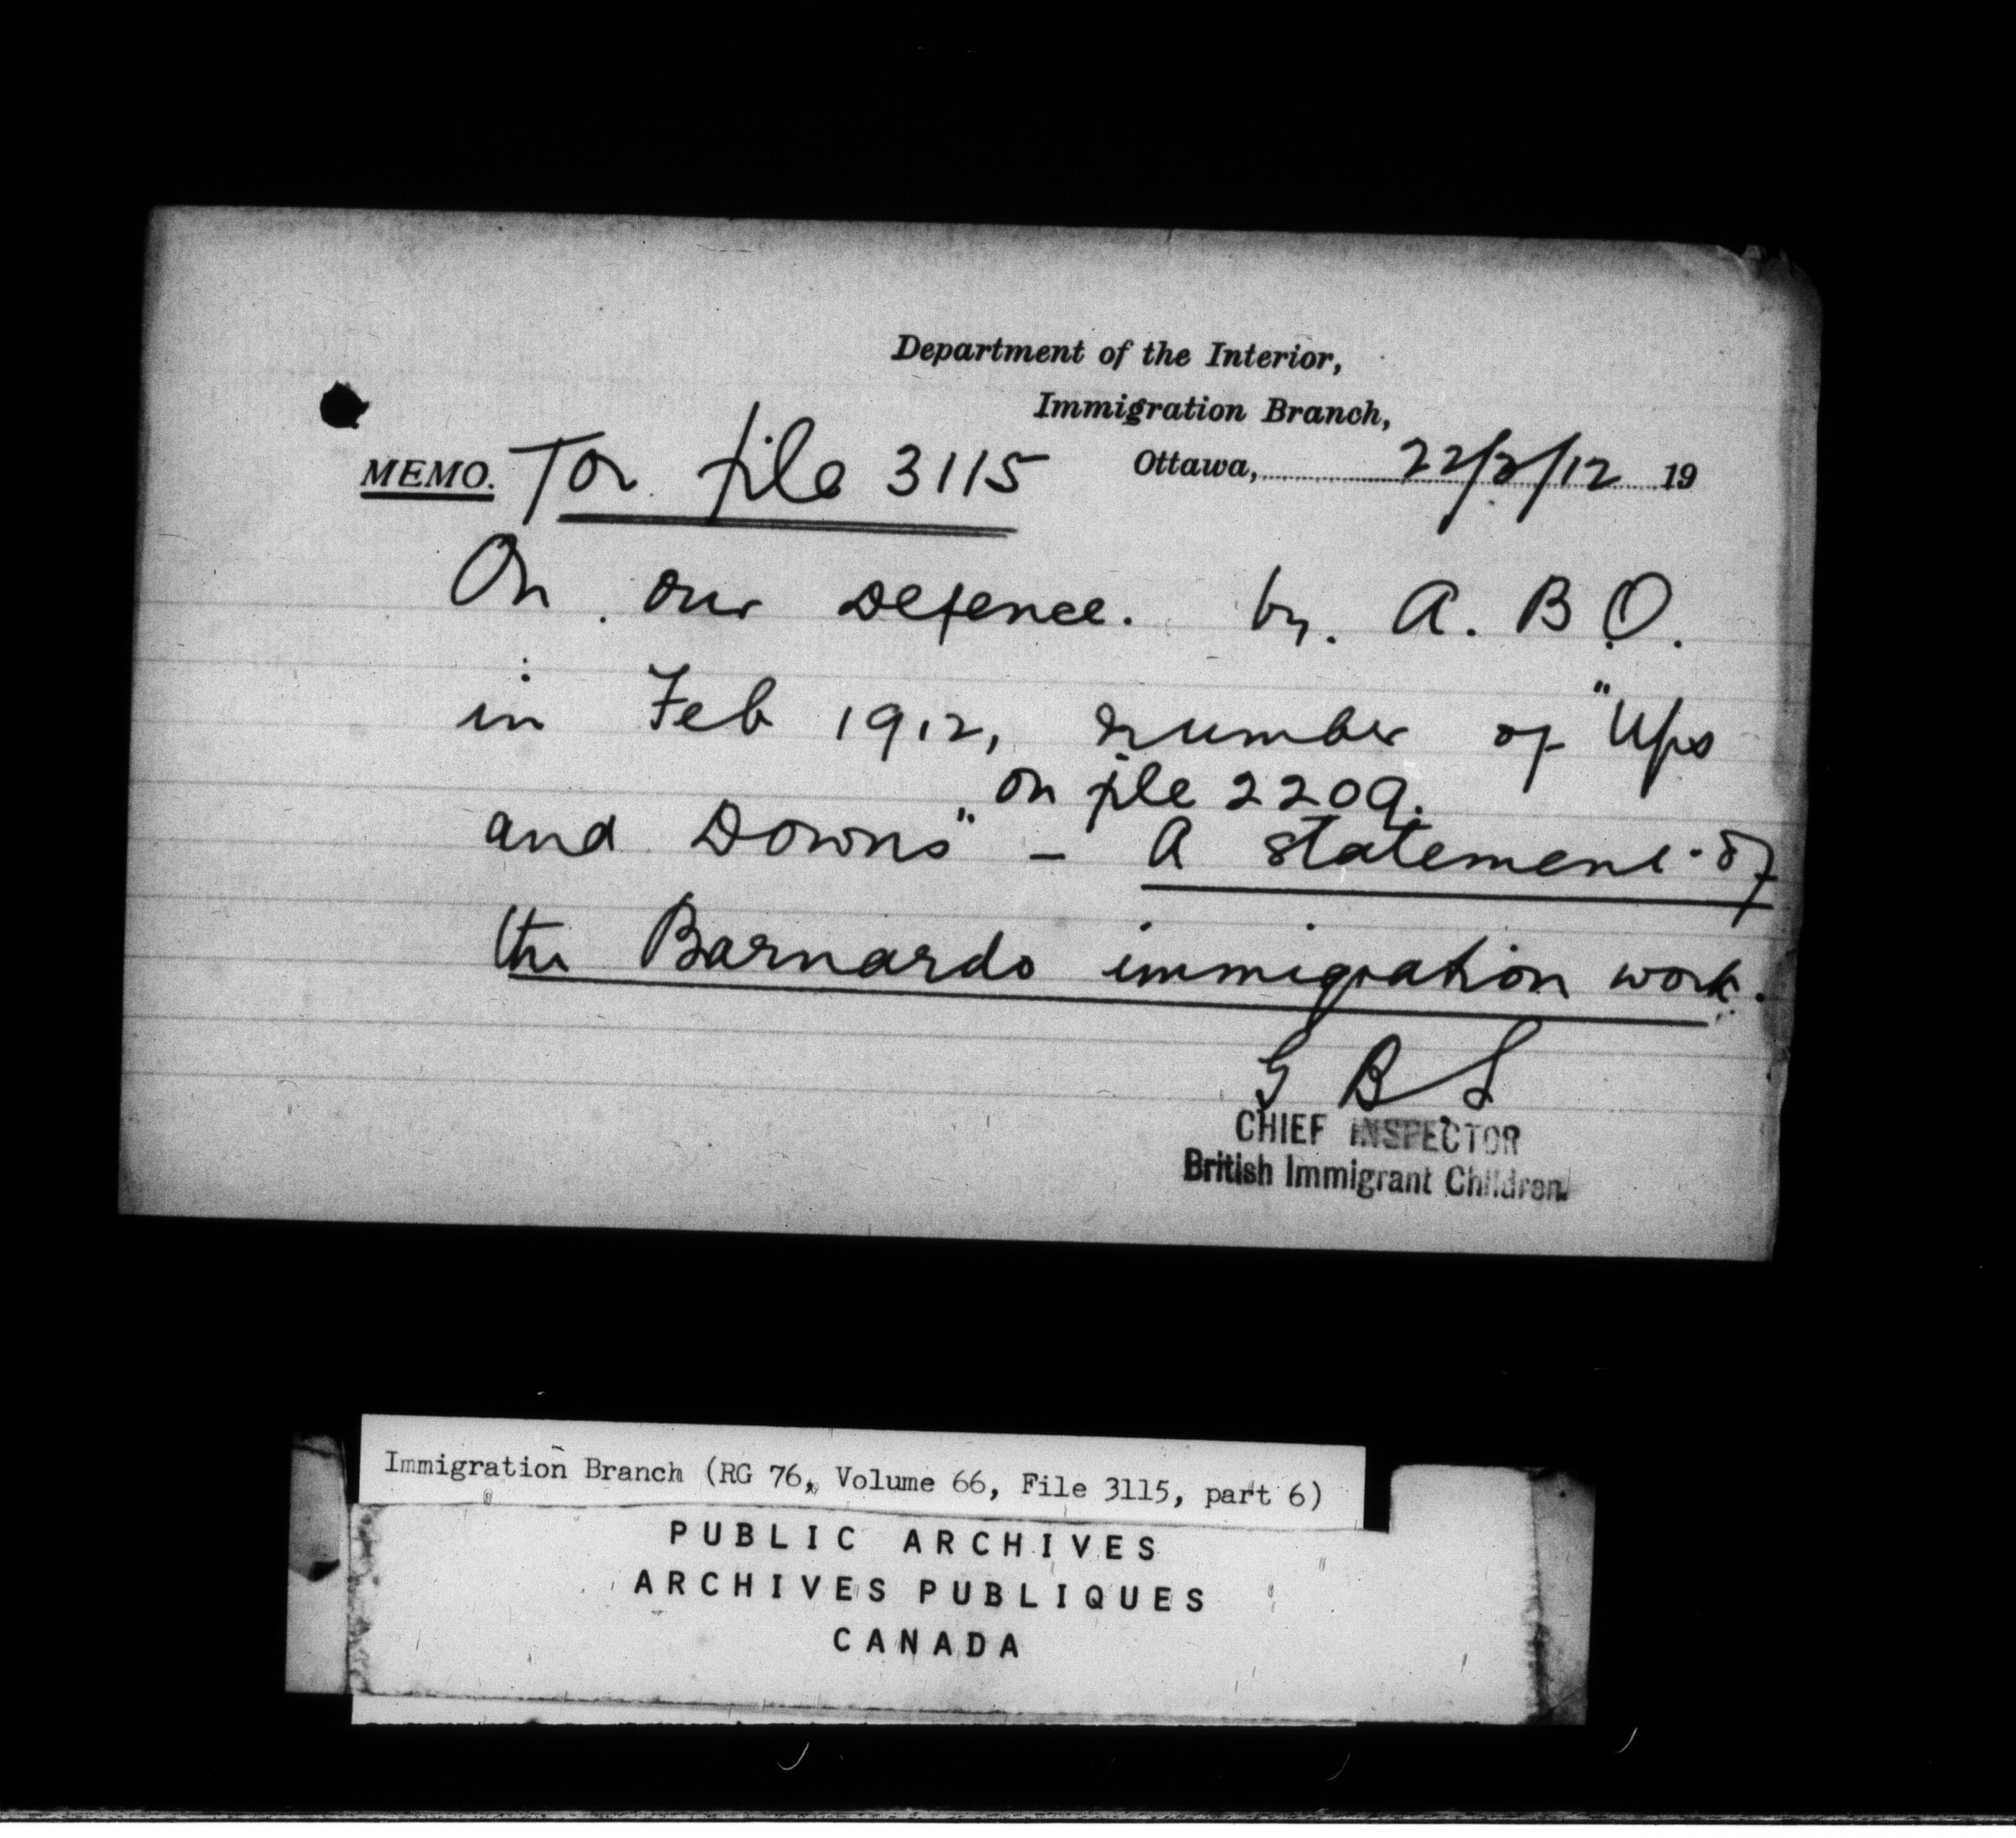 Department of the Interior,
Immigration Branch,
MEMO. For file 3115 Ottawa, 22/2/12 19
On our Defence. by. A. B. O.
in Feb 1912, number of "Ups
on file 2209.
and Downs" – A statement of
the Barnardo immigration work.
G B S
CHIEF INSPECTOR
British Immigrant Children.
Immigration Branch (RG 76, Volume 66, File 3115, part 6)
PUBLIC ARCHIVES
ARCHIVES PUBLIQUES
CANADA